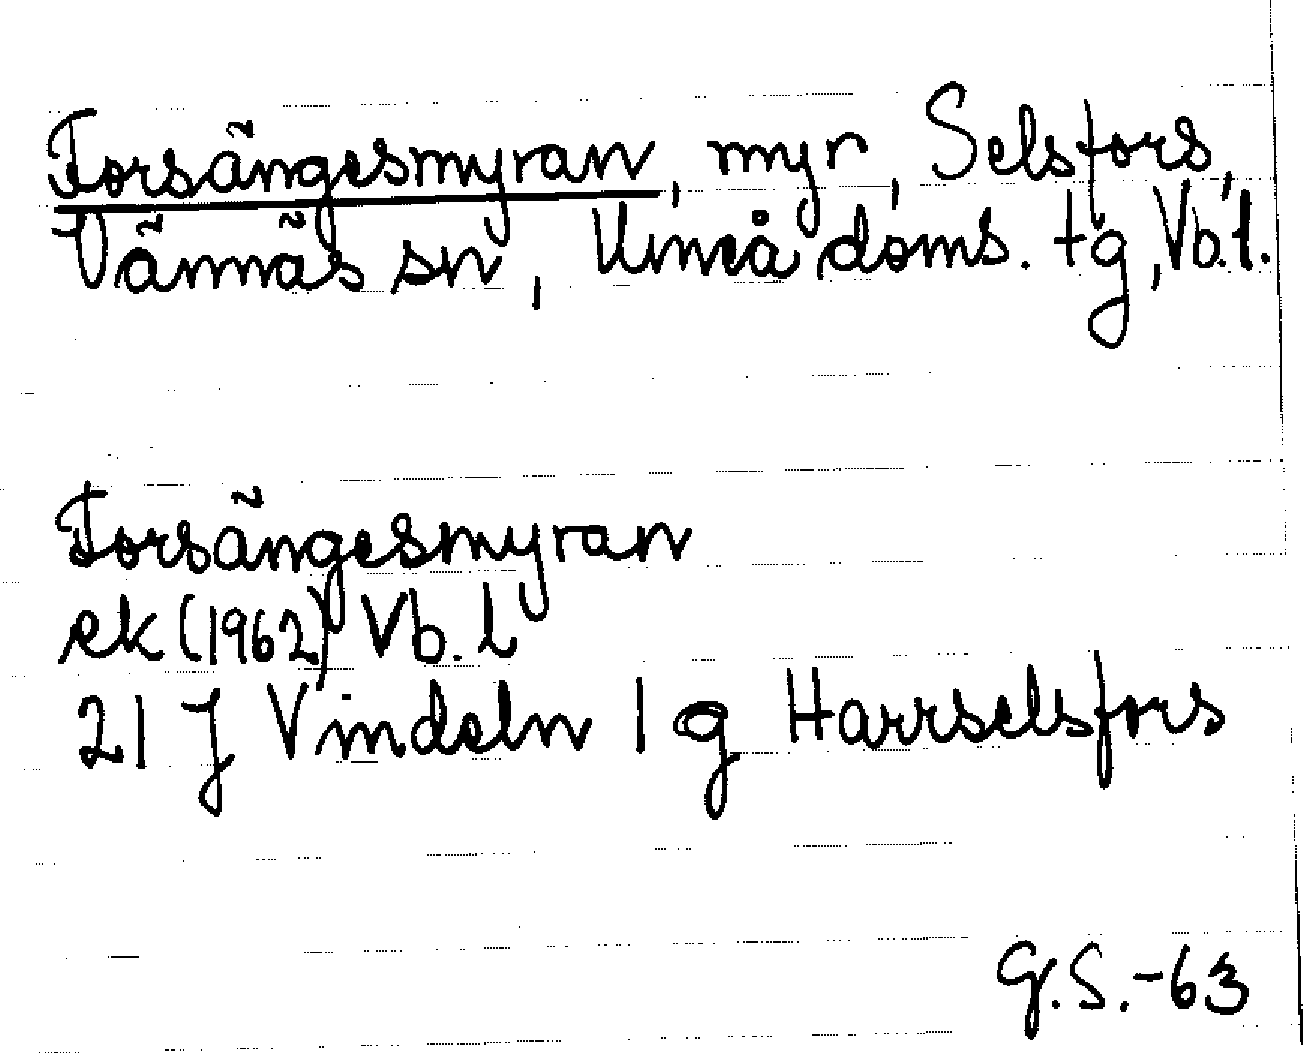 Forsängesmyran, myr, Selsfors,
Vännäs sn, Umeå doms. tg, Vb.l.
Forsängesmyran
ek (1962) Vb. l
21 J Vindeln 1 g Harrselsfors
G.S.-63